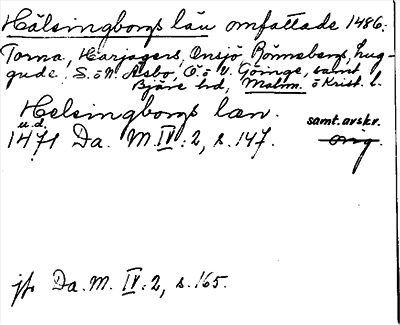 Hälsingborgs län omfattade 1486:
Torna, Harjagers, Onsjö Rönnebergs, Lug-
gude, S. o N. Åsbo, Ö. o V. Göinge, samt
Bjäre hd, Malm. o Krist. l.
Helsingborgs læn.
u.d. samt. avskr.
1471 Da. M. IV:2, s. 147. orig.
jfr Da. M. IV:2, s. 165.